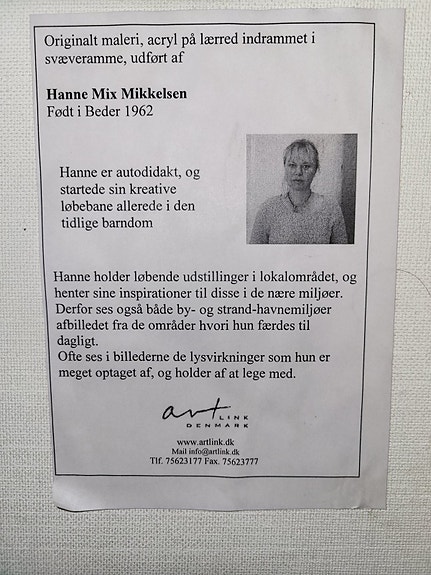 Originalt maleri, acryl på lærred indrammet i
svæveramme, udført af
Hanne Mix Mikkelsen
Født i Beder 1962
Hanne er autodidakt, og
startede sin kreative
løbebane allerede i den
tidlige barndom
Hanne holder løbende udstillinger i lokalområdet, og
henter sine inspirationer til disse i de nære miljøer.
Derfor ses også både by- og strand-havnemiljøer
afbilledet fra de områder hvori hun færdes til
dagligt.
Ofte ses i billederne de lysvirkninger som hun er
meget optaget af, og holder af at lege med.
art LINK
DENMARK
www.artlink.dk
Mail info@artlink.dk
Tlf. 75623177 Fax. 75623777